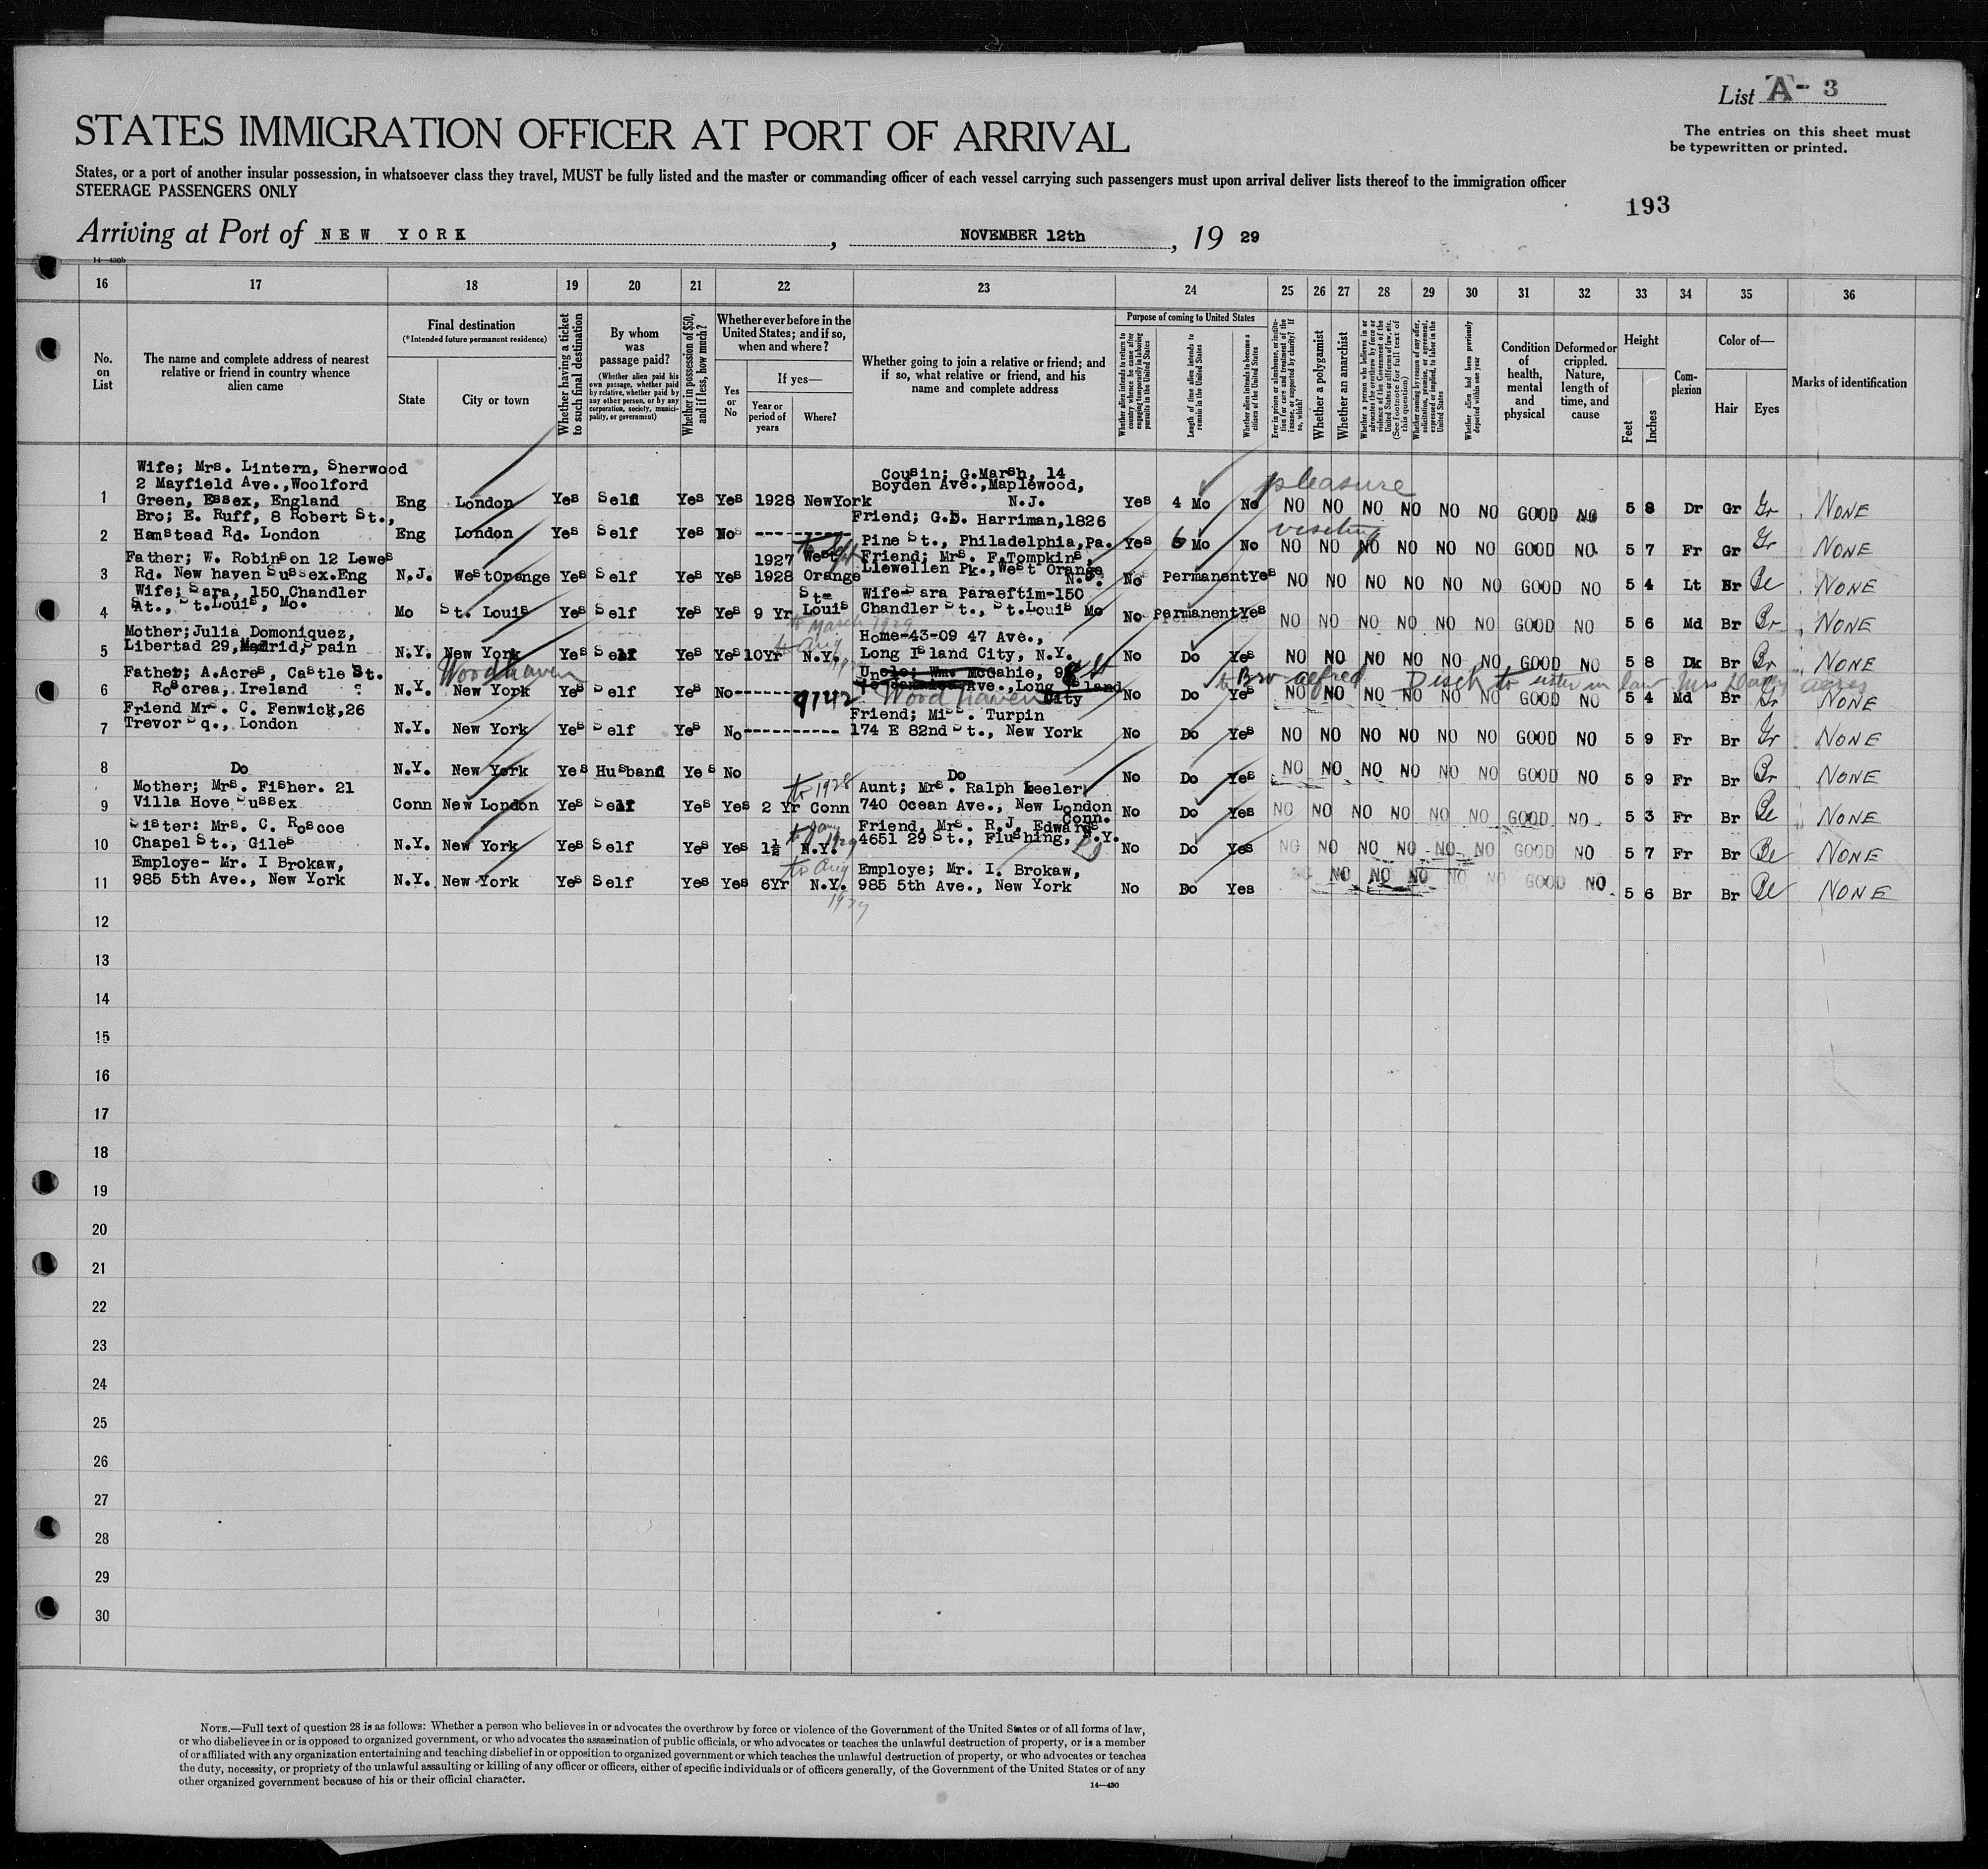 List A- 3
STATES IMMIGRATION OFFICER AT PORT OF ARRIVAL
The entries on this sheet must
be typewritten or printed.
States, or a port of another insular possession, in whatsoever class they travel, MUST be fully listed and the master or commanding officer of each vessel carrying such passengers must upon arrival deliver lists thereof to the immigration officer
STEERAGE PASSENGERS ONLY
193
Arriving at Port of NEW YORK, NOVEMBER 12th, 19 29
14—430b
16 17 18 19 20 21 22 23 24 25 26 27 28 29 30 31 32 33 34 35 36
No. on List
The name and complete address of nearest relative or friend in country whence alien came
Final destination
(*Intended future permanent residence)
State
City or town
Whether having a ticket to such final destination
By whom was passage paid?
(Whether alien paid his own passage, whether paid by relative, whether paid by any other person, or by any corporation, society, municipality, or government)
Whether in possession of $50, and if less, how much?
Whether ever before in the United States; and if so, when and where?
Yes or No
If yes—
Year or period of years
Where?
Whether going to join a relative or friend; and if so, what relative or friend, and his name and complete address
Purpose of coming to United States
Whether alien intends to return to country whence he came after engaging temporarily in laboring pursuits in the United States
Length of time alien intends to remain in the United States
Whether alien intends to become a citizen of the United States
Ever in prison or almshouse, or institution for care and treatment of the insane, or supported by charity? If so, which?
Whether a polygamist
Whether an anarchist
Whether a person who believes in or advocates the overthrow by force or violence of the Government of the United States or all forms of law, etc. (See footnote for full text of this question)
Whether coming by reason of any offer, solicitation, promise, or agreement, expressed or implied, to labor in the United States
Whether alien had been previously deported within one year
Condition of health, mental and physical
Deformed or crippled. Nature, length of time, and cause
Height
Feet
Inches
Complexion
Color of—
Hair
Eyes
Marks of identification
pleasure
1 Wife; Mrs. Lintern, Sherwood 2 Mayfield Ave.,Woolford Green, Essex, England Eng London Yes Self Yes Yes 1928 NewYork Cousin; G.Marsh, 14 Boyden Ave.,Maplewood, N.J. Yes 4 Mo No NO NO NO NO NO NO GOOD NO 5 8 Dr Gr Gr NONE
visiting
2 Bro; E. Ruff, 8 Robert St., Hamstead Rd. London Eng London Yes Self Yes No ---------- Friend; G.B. Harriman,1826 Pine St., Philadelphia,Pa. Yes 6 Mo No NO NO NO NO NO NO GOOD NO 5 7 Fr Gr Gr NONE
3 Father; W. Robinson 12 Lewes Rd. New haven Sussex.Eng N.J. WestOrange Yes Self Yes Yes 1927 1928 West Orange Friend; Mrs. F.Tompkins, Llewellen Pk.,West Orange N.J. No Permanent Yes NO NO NO NO NO NO GOOD NO 5 4 Lt Br Be NONE
4 Wife; Sara, 150 Chandler St., St.Louis, Mo. Mo St. Louis Yes Self Yes Yes 9 Yr St. Louis Wife-Sara Paraeftim-150 Chandler St., St.Louis Mo No Permanent Yes NO NO NO NO NO NO GOOD NO 5 6 Md Br Br NONE
to March 1929
5 Mother;Julia Domoniquez, Libertad 29,Madrid,Spain N.Y. New York Yes Self Yes Yes 10Yr N.Y. Home-43-09 47 Ave., Long Island City, N.Y. No Do Yes NO NO NO NO NO NO GOOD NO 5 8 Dk Br Br NONE
to Aug
Woodhaven
to Bro alfred Disch to sister in law Mrs acres
6 Father; A.Acres, Castle St. Roscrea, Ireland N.Y. New York Yes Self Yes No------- 9142 Uncle; Wm. McGahie, 98 Jamaica Ave.,Long Island City Woodhaven No Do Yes NO NO NO NO NO NO GOOD NO 5 4 Md Br Gr NONE
7 Friend Mrs. C. Fenwick,26 Trevor Sq., London N.Y. New York Yes Self Yes No----------- Friend; Miss. Turpin 174 E 82nd St., New York No Do Yes NO NO NO NO NO NO GOOD NO 5 9 Fr Br Gr NONE
8 Do N.Y. New York Yes Husband Yes No Do No Do Yes NO NO NO NO NO NO GOOD NO 5 9 Fr Br Br NONE
to 1928
9 Mother; Mrs. Fisher. 21 Villa Hove Sussex Conn New London Yes Self Yes Yes 2 Yr Conn Aunt; Mrs. Ralph Keeler 740 Ocean Ave., New London Conn. No Do Yes NO NO NO NO NO NO GOOD NO 5 3 Fr Br Be NONE
to Jany 1929
10 Sister: Mrs. C. Roscoe Chapel St., Giles N.Y. New York Yes Self Yes Yes 1½ N.Y. Friend, Mrs. R.J. Edwards 4651 29 St., Flushing, N.Y. No Do Yes NO NO NO NO NO NO GOOD NO 5 7 Fr Br Be NONE
to Aug 1929
11 Employe- Mr. I Brokaw, 985 5th Ave., New York N.Y. New York Yes Self Yes Yes 6Yr N.Y. Employe; Mr. I. Brokaw, 985 5th Ave., New York No Do Yes NO NO NO NO NO NO GOOD NO 5 6 Br Br Be NONE
12
13
14
15
16
17
18
19
20
21
22
23
24
25
26
27
28
29
30
NOTE.—Full text of question 28 is as follows: Whether a person who believes in or advocates the overthrow by force or violence of the Government of the United States or of all forms of law,
or who disbelieves in or is opposed to organized government, or who advocates the assassination of public officials, or who advocates or teaches the unlawful destruction of property, or is a member
of or affiliated with any organization entertaining and teaching disbelief in or opposition to organized government or which teaches the unlawful destruction of property, or who advocates or teaches
the duty, necessity, or propriety of the unlawful assaulting or killing of any officer or officers, either of specific individuals or of officers generally, of the Government of the United States or of any
other organized government because of his or their official character.
14—430